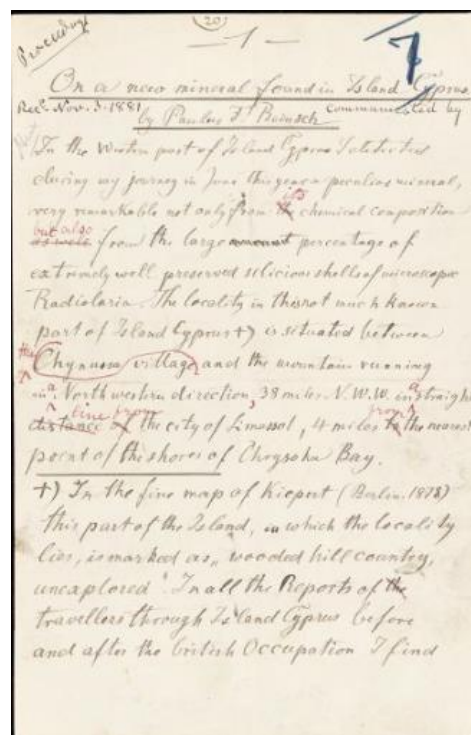 Proceedings
(20)
— 1 —
7
On a new mineral found in Island Cyprus
Recd. Nov. 3. 1881 by Paulus F. Reinsch communicated by
In the Western part of Island Cyprus I detected
during my journey in June this year a peculiar mineral,
very remarkable not only from its chemical composition
but also
as well from the large amount percentage of
extremely well preserved silicious shells of microscopic
Radiolaria. The locality in this not much known
part of Island Cyprus +) is situated between
the Chynussa village and the mountain running
in a North western direction, 38 miles N.W.W. in a straight
line from from
distance of the city of Limossol, 4 miles to the nearest
point of the shores of Chrysoku Bay.
+) In the fine map of Kiepert (Berlin. 1878)
this part of the Island, in which the locality
lies, is marked as „wooded hill country,
unexplored". In all the Reports of the
travellers through Island Cyprus before
and after the british Occupation I find